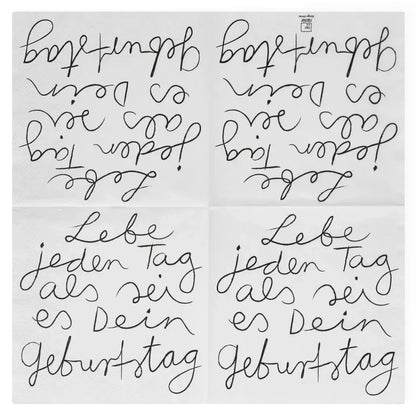 Geburtstag
es Dein
als sei
jeden Tag
Lebe
Geburtstag
es Dein
als sei
jeden Tag
Lebe
Lebe
jeden Tag
als sei
es Dein
Geburtstag
Lebe
jeden Tag
als sei
es Dein
Geburtstag